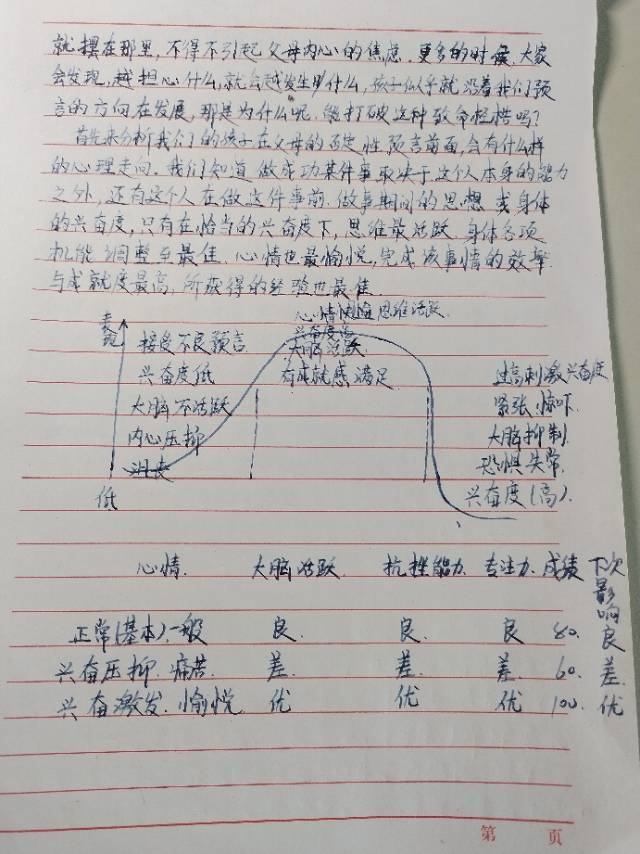 就摆在那里，不得不引起父母内心的焦虑．更多的时候，大家
会发现，越担心什么，就会越发生什么，孩子似乎就沿着我们预
言的方向在发展，那是为什么呢，能打破这种致命桎梏吗？
首先来分析我们的孩子在父母的否定性预言前面，会有什么样
的心理走向．我们知道做成功某件事取决于这个人本身的能力
之外，还有这个人在做这件事前．做事期间的思想或身体
的兴奋度，只有在恰当的兴奋度下，思维最活跃．身体各项
机能调整至最佳．心情也最愉悦，完成该事情的效率
与成就度最高，所获得的经验也最佳．
心情快 思维活跃．
表现
接受不良预言
兴奋度
大脑活跃．
兴奋度低
有成就感满足．
过高刺激兴奋度
大脑不活跃
紧张．惊吓．
内心压抑
大脑抑制
消失
恐惧失常．
低
兴奋度（高）．
心情． 大脑活跃． 抗挫能力． 专注力． 成绩 下次影响
正常（基本）．一般 良． 良． 良 80． 良
兴奋压抑．痛苦． 差． 差． 差． 60． 差．
兴奋激发．愉悦 优 优 优 100． 优
第 页